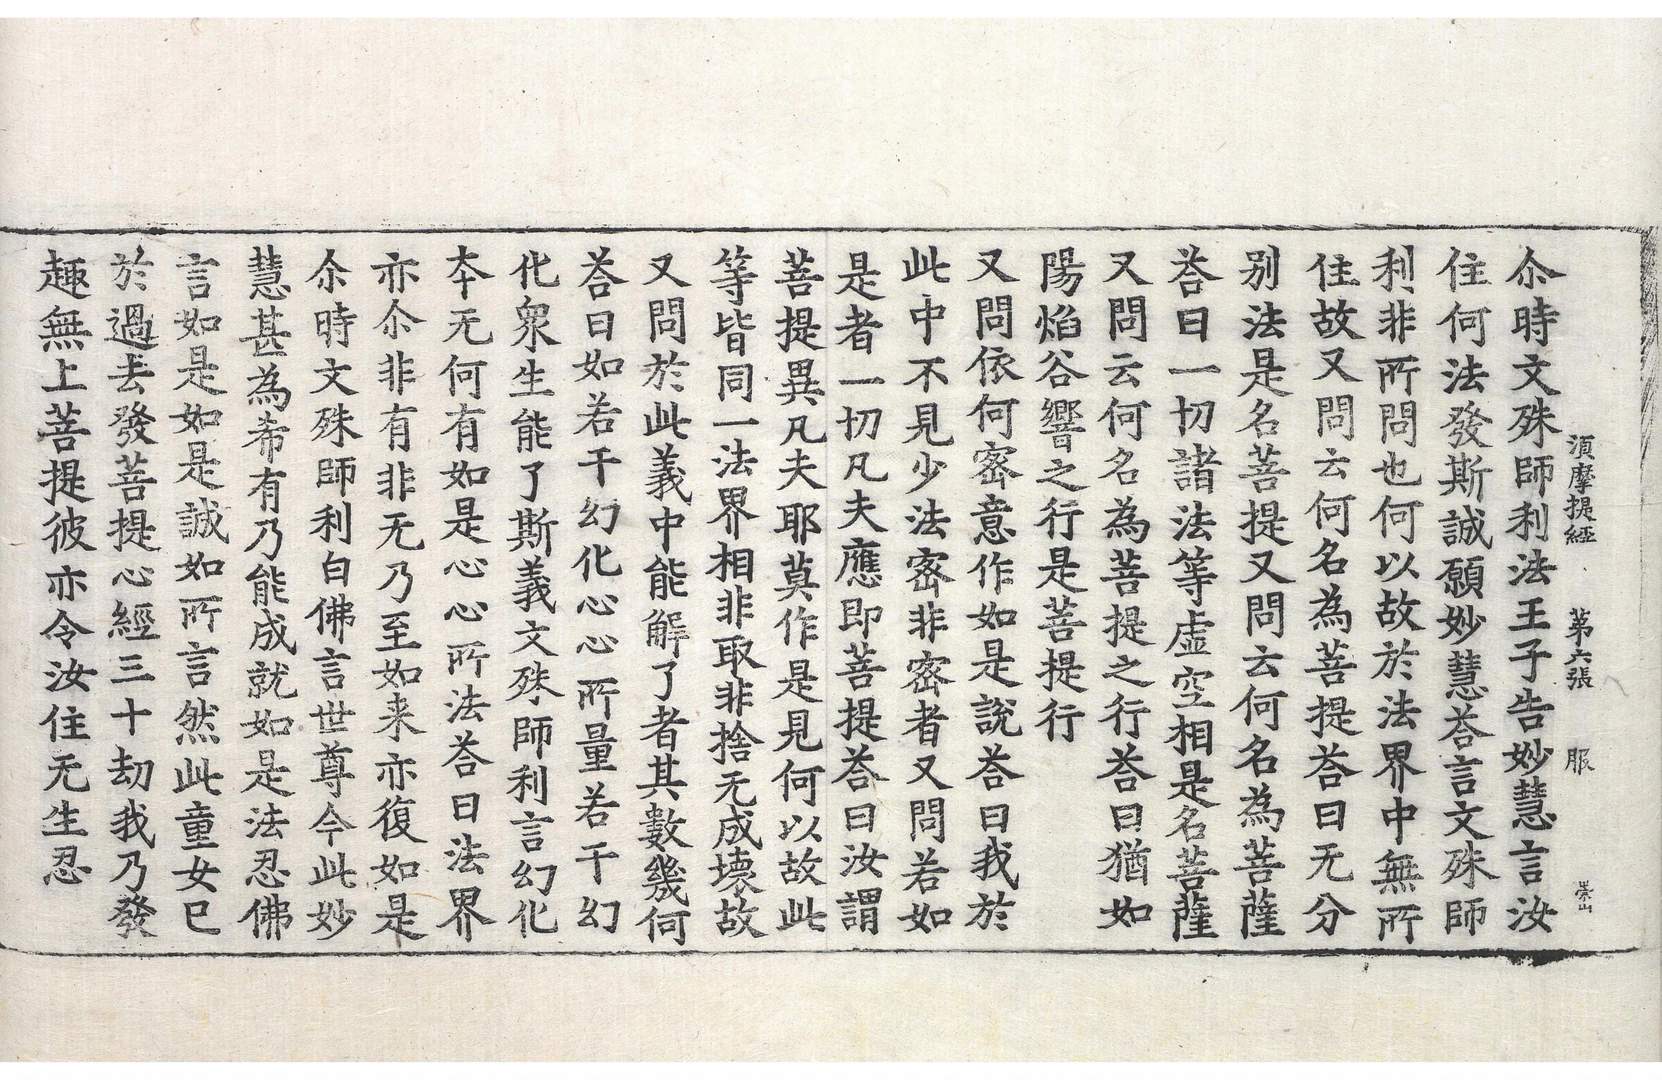 須摩提經 第六張 服 崇山
尒時文殊師利法王子告妙慧言汝
住何法發斯誠願妙慧荅言文殊師
利非所問也何以故於法界中無所
住故又問云何名為菩提荅曰无分
别法是名菩提又問云何名為菩薩
荅曰一切諸法等虛空相是名菩薩
又問云何名為菩提之行荅曰猶如
陽焰谷響之行是菩提行
又問依何密意作如是說荅曰我於
此中不見少法密非密者又問若如
是者一切凡夫應即菩提荅曰汝謂
菩提異凡夫耶莫作是見何以故此
等皆同一法界相非取非捨无成壞故
又問於此義中能解了者其數幾何
荅曰如若干幻化心心所量若干幻
化衆生能了斯義文殊師利言幻化
本无何有如是心心所法荅曰法界
亦尒非有非无乃至如来亦復如是
尒時文殊師利白佛言世尊今此妙
慧甚為希有乃能成就如是法忍佛
言如是如是誠如所言然此童女已
於過去發菩提心經三十劫我乃發
趣無上菩提彼亦令汝住无生忍